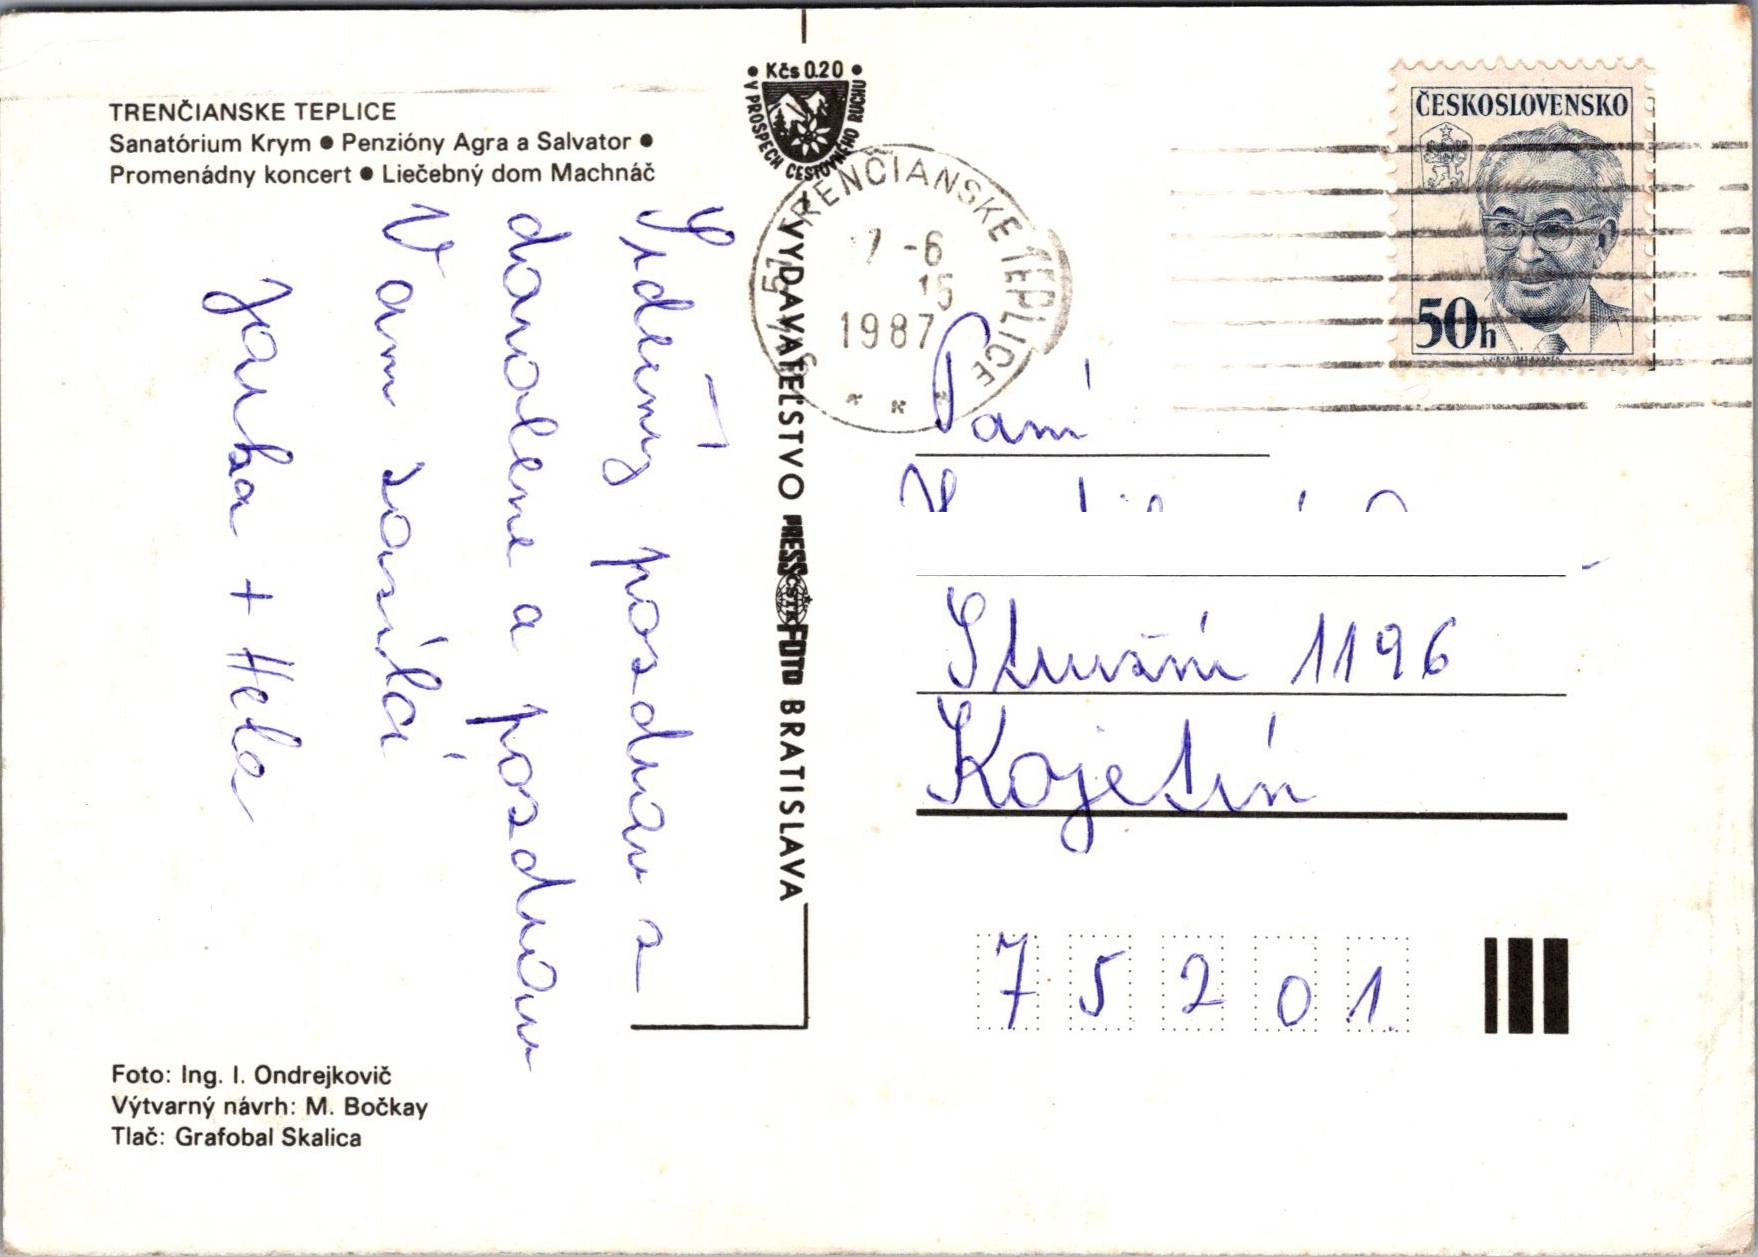 TRENČIANSKE TEPLICE
Sanatórium Krym ● Penzióny Agra a Salvator ●
Promenádny koncert ● Liečebný dom Machnáč
Srdečný pozdrav z
dovolené a pozdrav
Vám zasílá
Jarka + Hela
Foto: Ing. I. Ondrejkovič
Výtvarný návrh: M. Bočkay
Tlač: Grafobal Skalica
• Kčs 0.20 •
V PROSPECH CESTOVNÉHO RUCHU
VYDAVATEĽSTVO PRESSFOTO BRATISLAVA
ČSTK
TRENČIANSKE TEPLICE
7 -6
15
1987
ČESKOSLOVENSKO
50h
Paní
Stružní 1196
Kojetín
75201